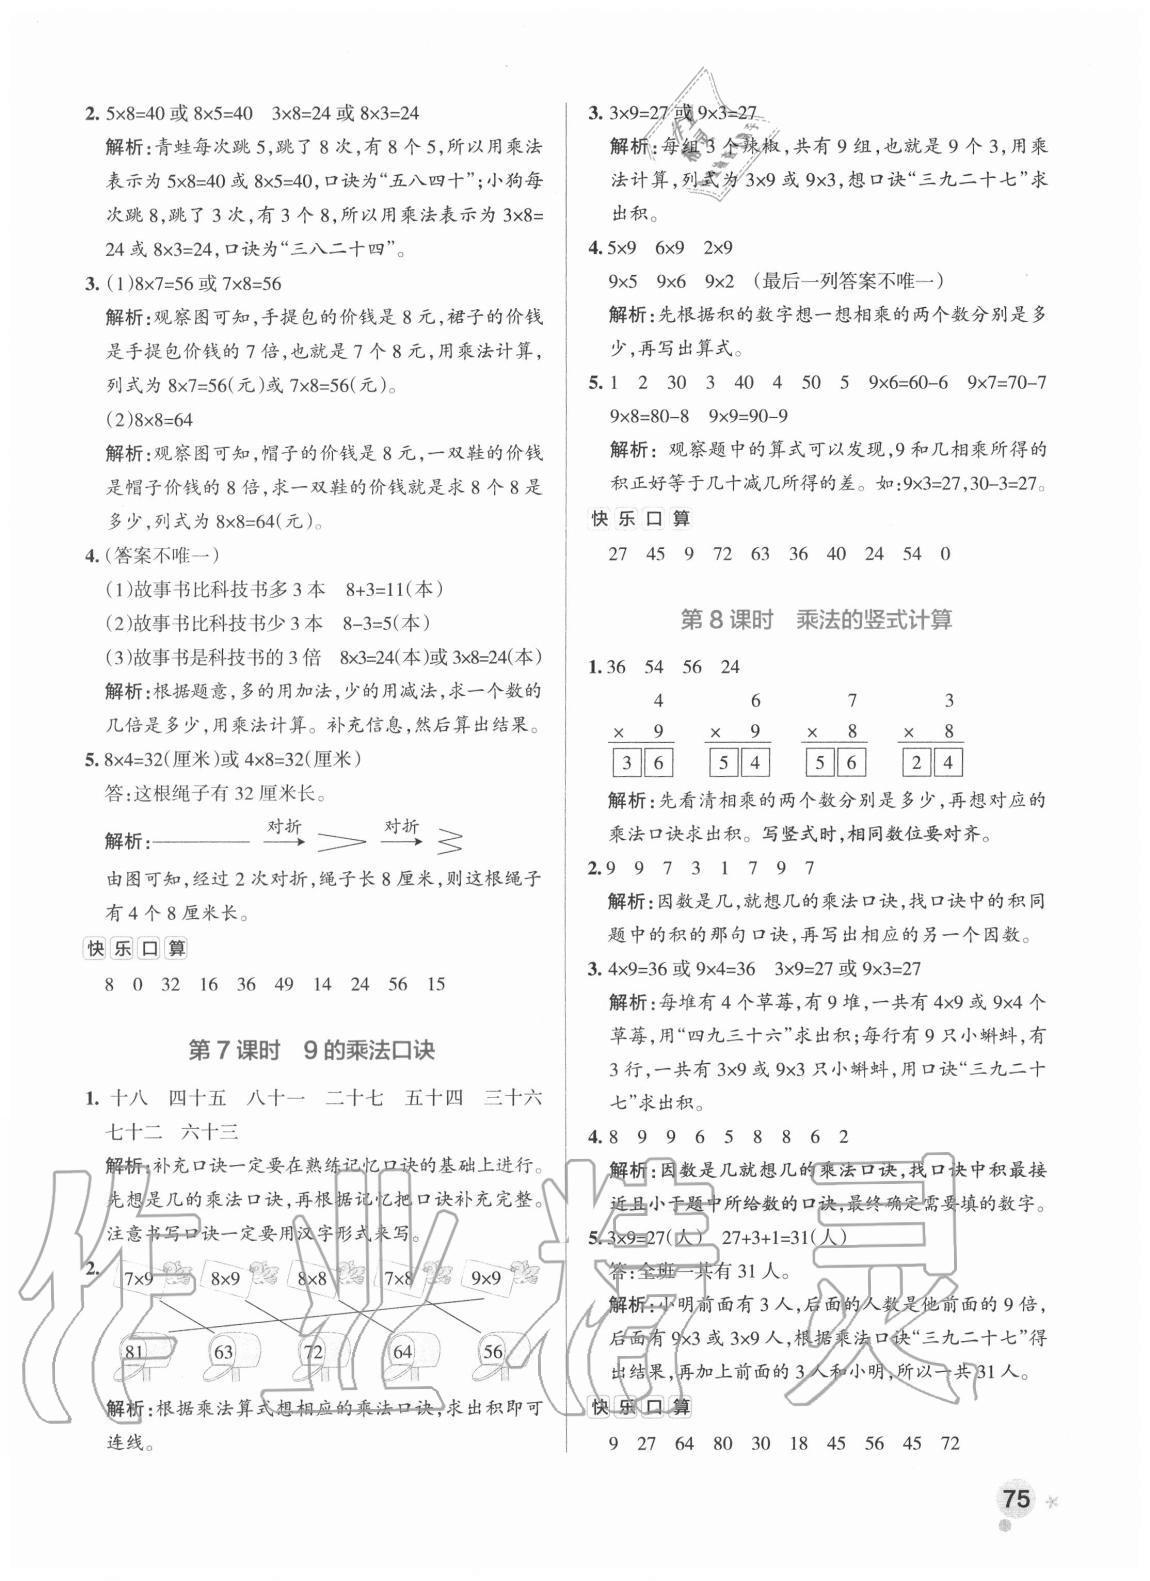 2. 5×8=40 或 8×5=40　3×8=24 或 8×3=24
解析:青蛙每次跳 5,跳了 8 次,有 8 个 5,所以用乘法
表示为 5×8=40 或 8×5=40,口诀为“五八四十”;小狗每
次跳 8,跳了 3 次,有 3 个 8,所以用乘法表示为 3×8=
24 或 8×3=24,口诀为“三八二十四”。
3. (1)8×7=56 或 7×8=56
解析:观察图可知,手提包的价钱是 8 元,裙子的价钱
是手提包价钱的 7 倍,也就是 7 个 8 元,用乘法计算,
列式为 8×7=56(元)或 7×8=56(元)。
(2)8×8=64
解析:观察图可知,帽子的价钱是 8 元,一双鞋的价钱
是帽子价钱的 8 倍,求一双鞋的价钱就是求 8 个 8 是
多少,列式为 8×8=64(元)。
4. (答案不唯一)
(1)故事书比科技书多 3 本　8+3=11(本)
(2)故事书比科技书少 3 本　8-3=5(本)
(3)故事书是科技书的 3 倍　8×3=24(本)或 3×8=24(本)
解析:根据题意,多的用加法,少的用减法,求一个数的
几倍是多少,用乘法计算。补充信息,然后算出结果。
5. 8×4=32(厘米)或 4×8=32(厘米)
答:这根绳子有 32 厘米长。
解析: 对折 对折
由图可知,经过 2 次对折,绳子长 8 厘米,则这根绳子
有 4 个 8 厘米长。
快乐口算
8　0　32　16　36　49　14　24　56　15
第 7 课时　9 的乘法口诀
1. 十八　四十五　八十一　二十七　五十四　三十六
七十二　六十三
解析:补充口诀一定要在熟练记忆口诀的基础上进行。
先想是几的乘法口诀,再根据记忆把口诀补充完整。
注意书写口诀一定要用汉字形式来写。
2. 7×9　8×9　8×8　7×8　9×9
81　63　72　64　56
解析:根据乘法算式想相应的乘法口诀,求出积即可
连线。
3. 3×9=27 或 9×3=27
解析:每组 3 个辣椒,共有 9 组,也就是 9 个 3,用乘
法计算,列式为 3×9 或 9×3,想口诀“三九二十七”求
出积。
4. 5×9　6×9　2×9
9×5　9×6　9×2　(最后一列答案不唯一)
解析:先根据积的数字想一想相乘的两个数分别是多
少,再写出算式。
5. 1　2　30　3　40　4　50　5　9×6=60-6　9×7=70-7
9×8=80-8　9×9=90-9
解析: 观察题中的算式可以发现,9 和几相乘所得的
积正好等于几十减几所得的差。如:9×3=27,30-3=27。
快乐口算
27　45　9　72　63　36　40　24　54　0
第 8 课时　乘法的竖式计算
1. 36　54　56　24
4　6　7　3
× 9　× 9　× 8　× 8
3 6　5 4　5 6　2 4
解析:先看清相乘的两个数分别是多少,再想对应的
乘法口诀求出积。写竖式时,相同数位要对齐。
2. 9　9　7　3　1　7　9　7
解析:因数是几,就想几的乘法口诀,找口诀中的积同
题中的积的那句口诀,再写出相应的另一个因数。
3. 4×9=36 或 9×4=36　3×9=27 或 9×3=27
解析:每堆有 4 个草莓,有 9 堆,一共有 4×9 或 9×4 个
草莓,用“四九三十六”求出积;每行有 9 只小蝌蚪,有
3 行,一共有 3×9 或 9×3 只小蝌蚪,用口诀“三九二十
七”求出积。
4. 8　9　9　6　5　8　8　6　2
解析:因数是几就想几的乘法口诀,找口诀中积最接
近且小于题中所给数的口诀,最终确定需要填的数字。
5. 3×9=27(人)　27+3+1=31(人)
答:全班一共有 31 人。
解析:小明前面有 3 人,后面的人数是他前面的 9 倍,
后面有 9×3 或 3×9 人,根据乘法口诀“三九二十七”得
出结果,再加上前面的 3 人和小明,所以一共 31 人。
快乐口算
9　27　64　80　30　18　45　56　45　72
75
作业精灵